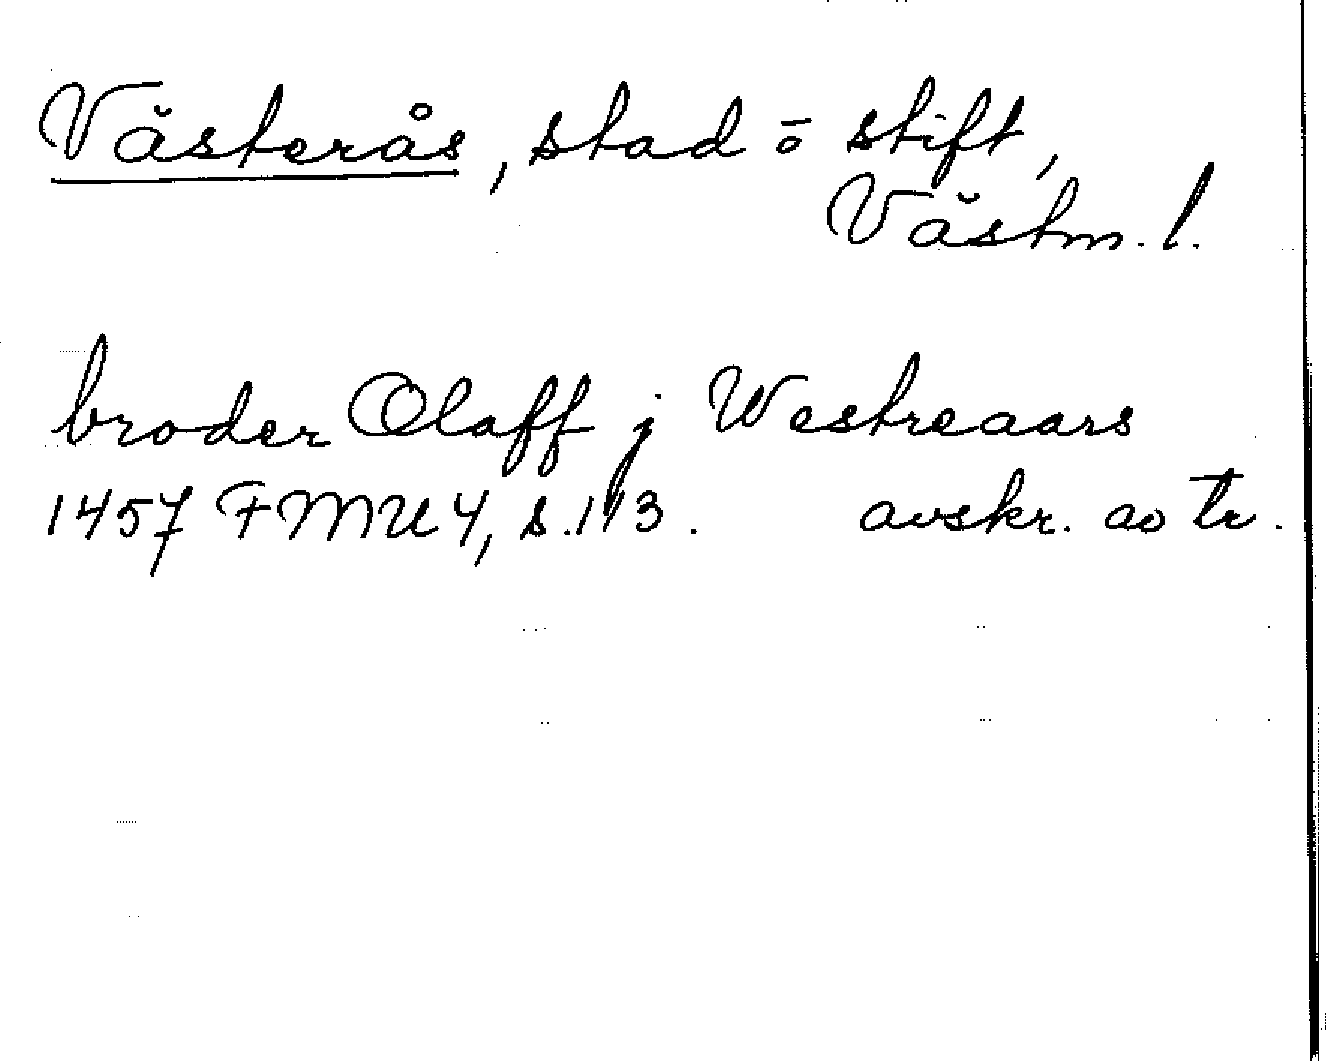 Västerås, stad ō stift,
Västm. l.
broder Olaff j Westreaars
1457 FMU 4, s. 113. avskr. av tr.